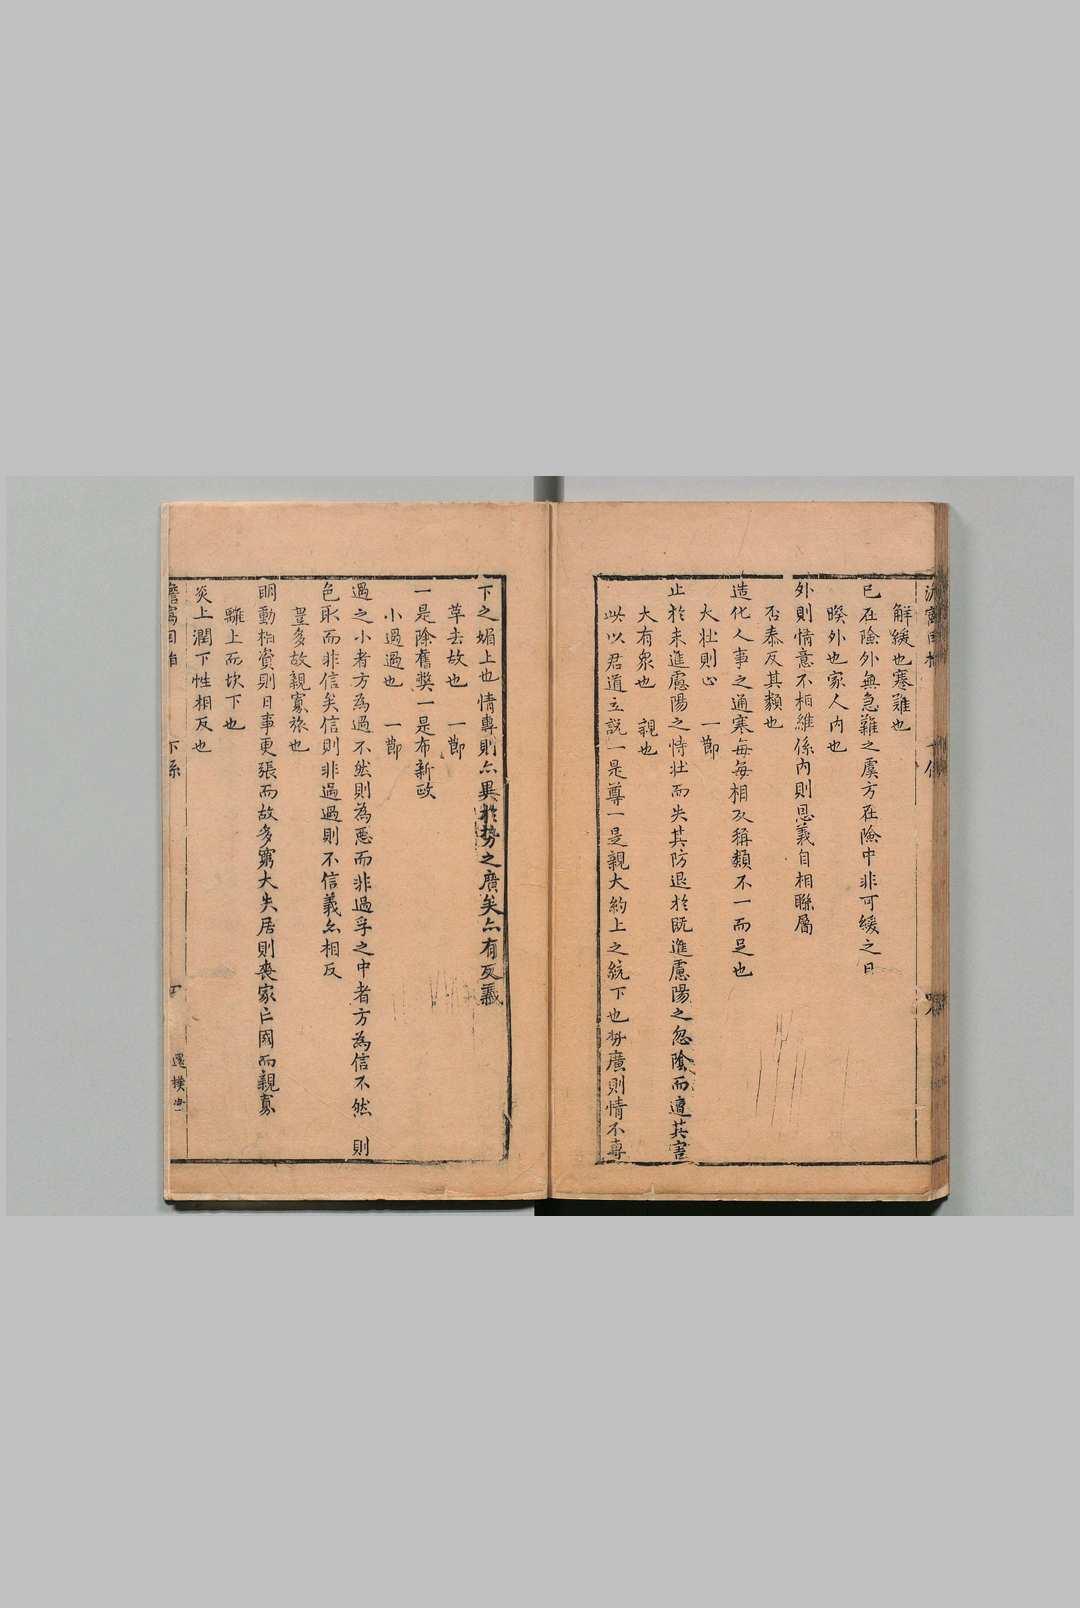 解緩也蹇難也
已在險外無急難之虞方在險中非可緩之日
睽外也家人内也
外則情意不相維係内則恩義自相聯屬
否泰反其類也
造化人事之通塞每每相反稱類不一而足也
大壯則止 一節
止於未進慮陽之恃壯而失其防退於既進慮陽之忽陰而遭其害
大有衆也 親也
此以君道立説一是尊一是親大約上之統下也勢廣則情不專
下之媚上也情專則亦異於勢之廣矣亦有反義
革去故也 一節
一是除舊獘一是布新政
小過過也 一節
過之小者方為過不然則為惡而非過孚之中者方為信不然 則
色取而非信矣信則非過過則不信義亦相反
豐多故親寡旅也
明動相資則日事更張而故多窮大失居則喪家亡國而親寡
離上而坎下也
炎上潤下性相反也
下系